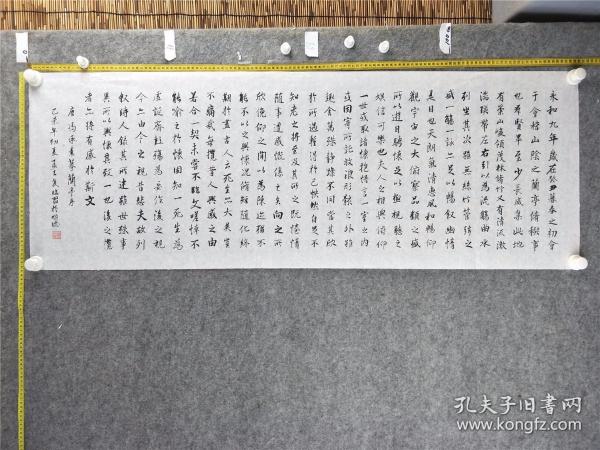 永和九年歲在癸丑暮春之初會
于會稽山陰之蘭亭脩稧事
也羣賢畢至少長咸集此地
有崇山峻領茂林脩竹又有清流激
湍暎帶左右引以為流觴曲水
列坐其次雖無絲竹管弦之
盛一觴一詠亦足以暢叙幽情
是日也天朗氣清惠風和暢仰
觀宇宙之大俯察品類之盛
所以遊目騁懷足以極視聽之
娛信可樂也夫人之相與俯仰
一世或取諸懷抱悟言一室之內
或因寄所託放浪形骸之外雖
趣舍萬殊靜躁不同當其欣
於所遇蹔得於己怏然自足不
知老之將至及其所之既惓情
隨事遷感慨係之矣向之所
欣俛仰之間以為陳迹猶不
能不以之興懷況脩短隨化終
期於盡古人云死生亦大矣豈
不痛哉每攬昔人興感之由
若合一契未嘗不臨文嗟悼不
能喻之於懷固知一死生為
虛誕齊彭殤為妄作後之視
今亦由今之視昔悲夫故列
敘時人錄其所述雖世殊事
異所以興懷其致一也後之攬
者亦將有感於斯文
唐馮承素摹蘭亭序
乙未年初夏
孔夫子旧书网
www.kongfz.com